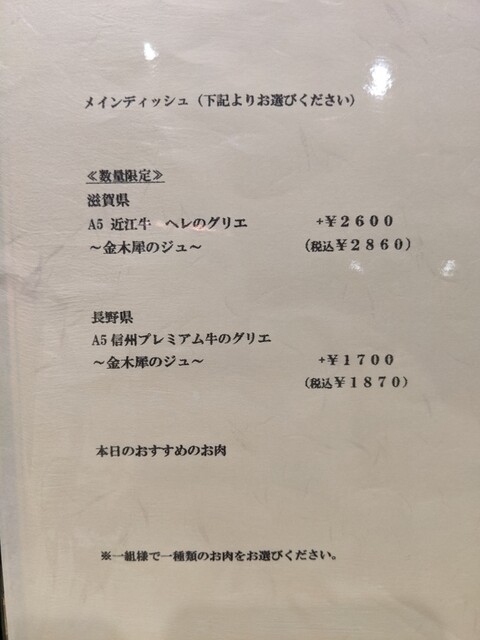 メインディッシュ（下記よりお選びください）
≪数量限定≫
滋賀県
A5 近江牛　ヘレのグリエ　+￥2600
～金木犀のジュ～　（税込￥2860）
長野県
A5信州プレミアム牛のグリエ
～金木犀のジュ～　+￥1700
（税込￥1870）
本日のおすすめのお肉
※一組様で一種類のお肉をお選びください。